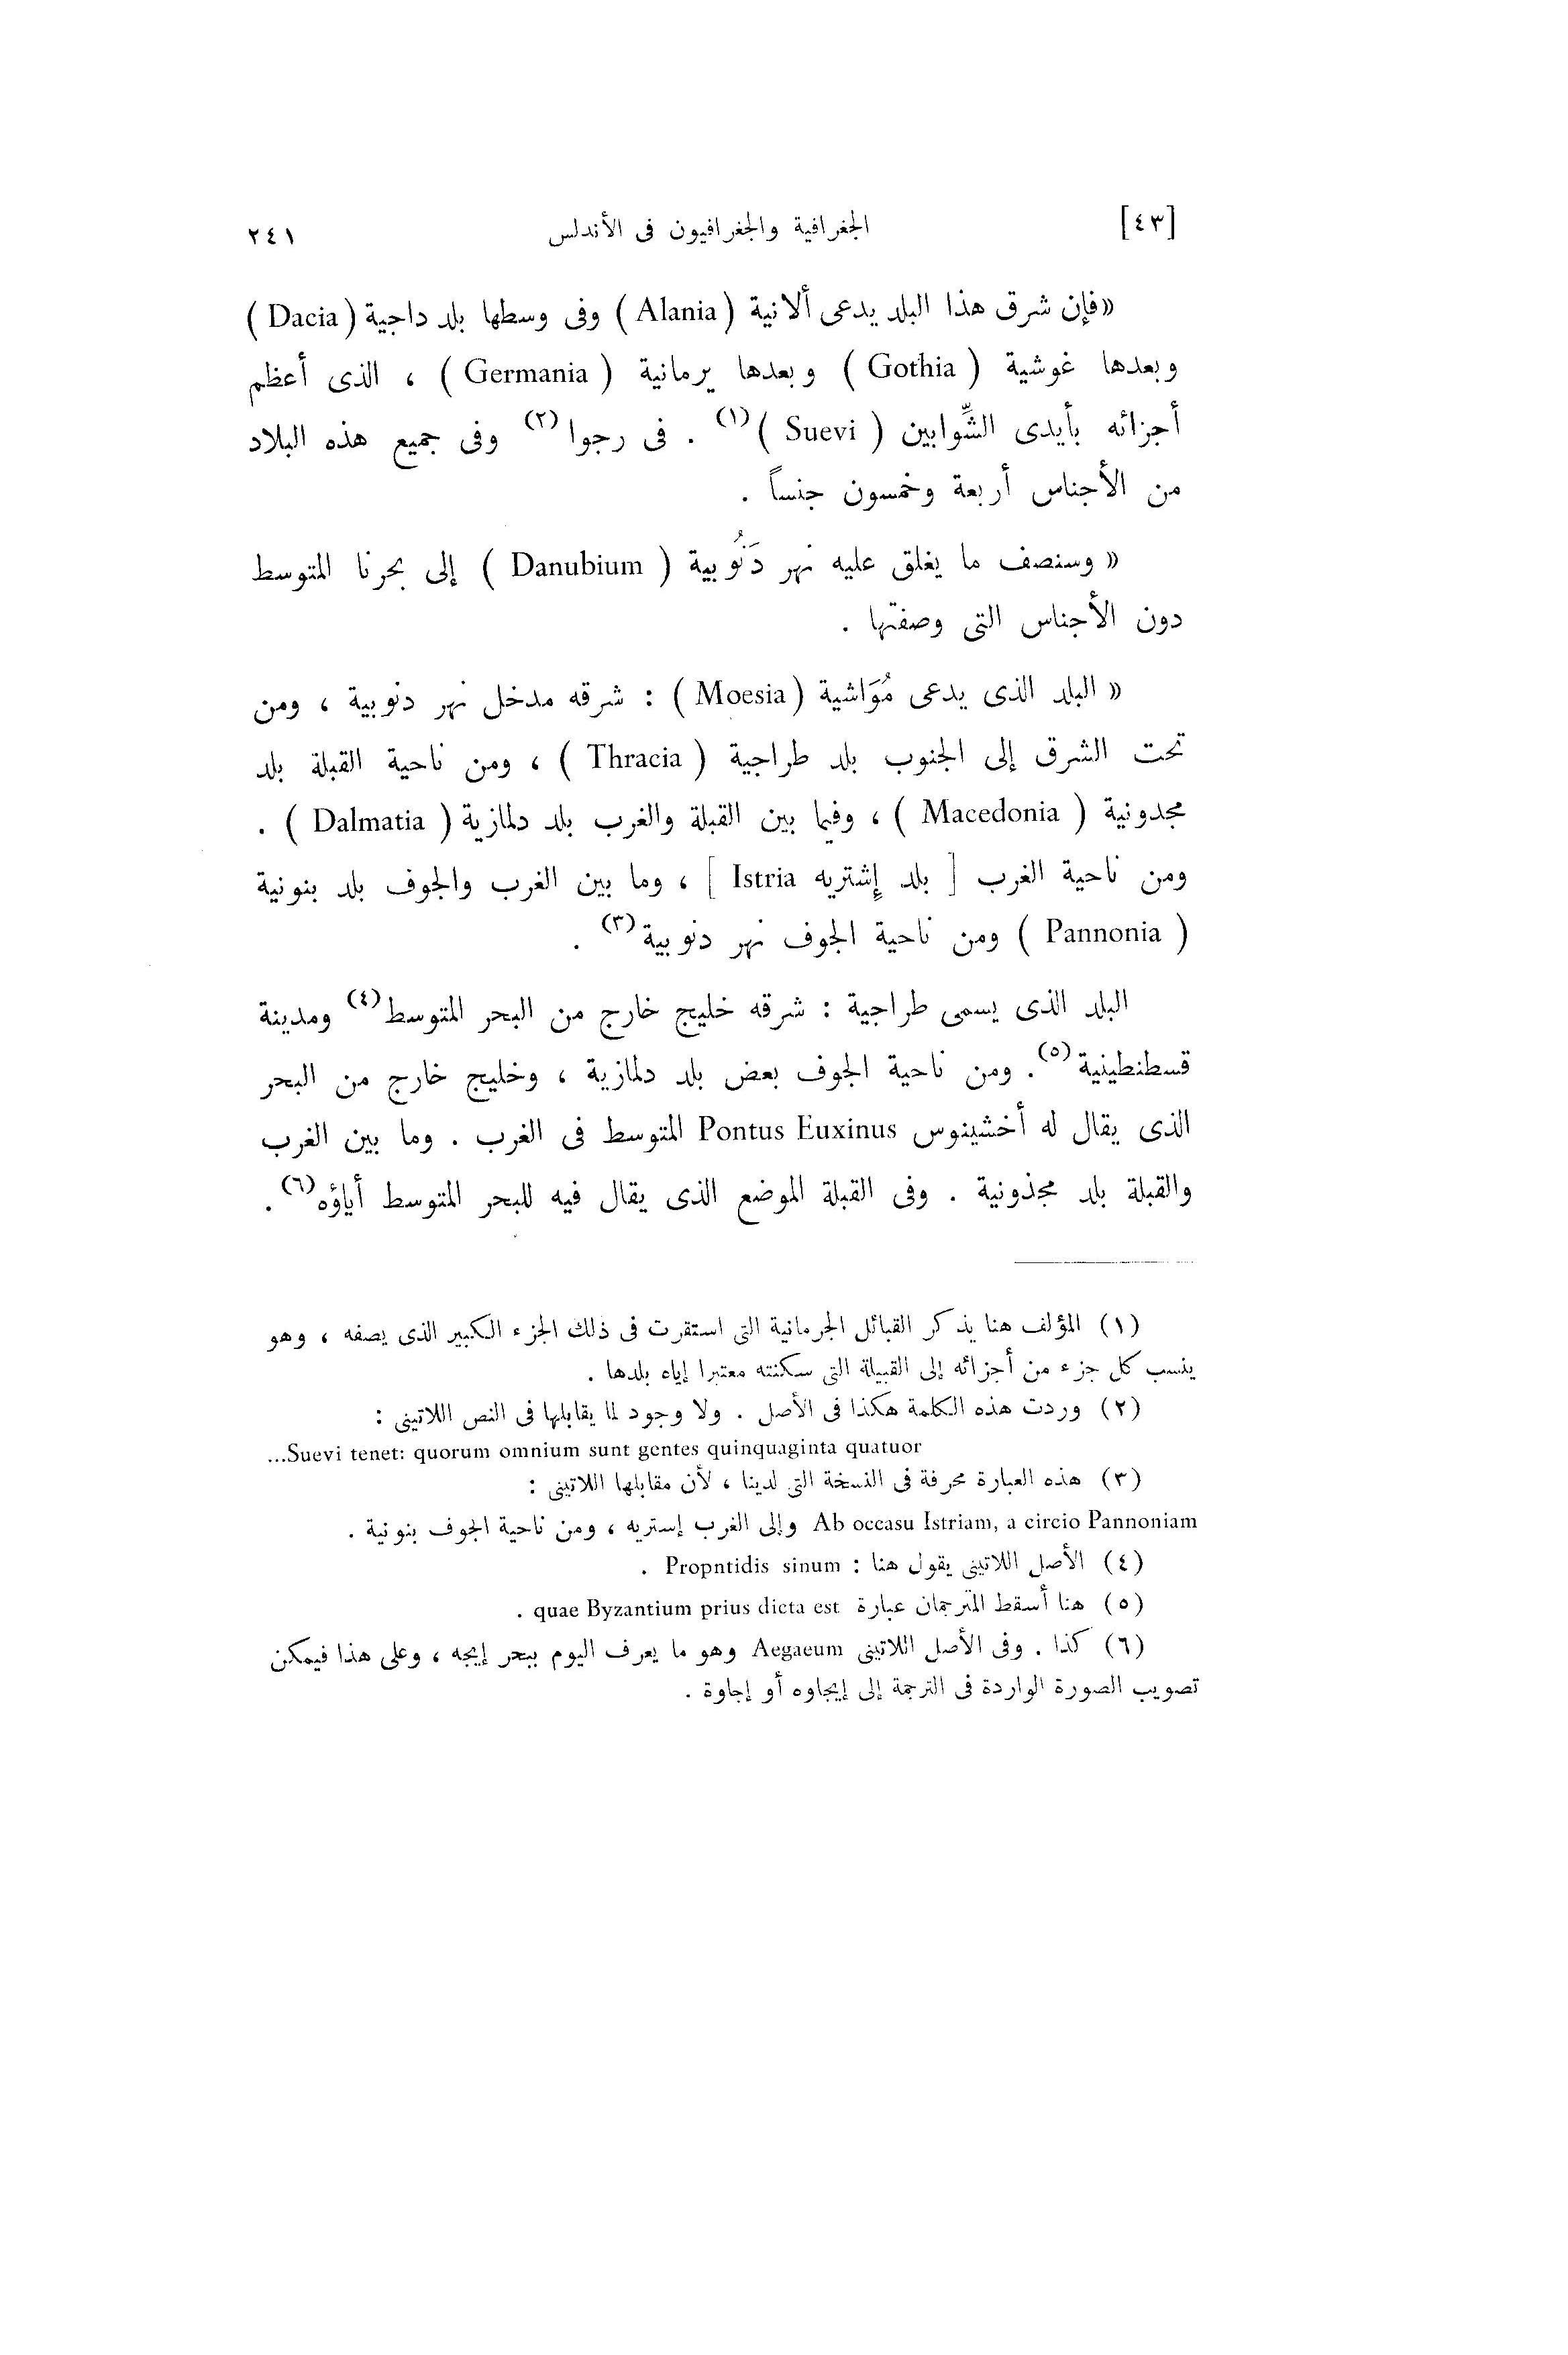 [٤٣] الجغرافية والجغرافيون فى الأندلس ٢٤١
«فإن شرق هذا البلد يدعى ألانية (Alania) وفى وسطها بلد داجية (Dacia)
وبعدها غوشية (Gothia) وبعدها يرمانية (Germania) ، الذى أعظم
أجزائه بأيدى الشِّوابين (Suevi)(١) . فى رجوا(٢) وفى جميع هذه البلاد
من الأجناس أربعة وخمسون جنساً .
«وسنصف ما يغلق عليه نهر دَنُوبية (Danubium) إلى بحرنا المتوسط
دون الأجناس التى وصفتها .
«البلد الذى يدعى مُوَاشية (Moesia) : شرقه مدخل نهر دنوبية ، ومن
تحت الشرق إلى الجنوب بلد طراجية (Thracia) ، ومن ناحية القبلة بلد
مجدونية (Macedonia) ، وفيما بين القبلة والغرب بلد دلمازية (Dalmatia) .
ومن ناحية الغرب [ بلد إِشتريه Istria ] ، وما بين الغرب والجوف بلد بنونية
(Pannonia) ومن ناحية الجوف نهر دنوبية(٣) .
البلد الذى يسمى طراجية : شرقه خليج خارج من البحر المتوسط(٤) ومدينة
قسطنطينية(٥) . ومن ناحية الجوف بعض بلد دلمازية ، وخليج خارج من البحر
الذى يقال له أخشينوس Pontus Euxinus المتوسط فى الغرب . وما بين الغرب
والقبلة بلد مجذونية . وفى القبلة الموضع الذى يقال فيه للبحر المتوسط أياؤه(٦) .
(١) المؤلف هنا يذكر القبائل الجرمانية التى استقرت فى ذلك الجزء الكبير الذى يصفه ، وهو
ينسب كل جزء من أجزائه إلى القبيلة التى سكنته معتبرا إياه بلدها .
(٢) وردت هذه الكلمة هكذا فى الأصل . ولا وجود لما يقابلها فى النص اللاتينى :
...Suevi tenet: quorum omnium sunt gentes quinquaginta quatuor
(٣) هذه العبارة محرفة فى النسخة التى لدينا ، لأن مقابلها اللاتينى :
Ab occasu Istriam, a circio Pannoniam وإلى الغرب إستريه ، ومن ناحية الجوف بنونية .
(٤) الأصل اللاتينى يقول هنا : Propntidis sinum .
(٥) هنا أسقط المترجمان عبارة quae Byzantium prius dicta est .
(٦) كذا . وفى الأصل اللاتينى Aegaeum وهو ما يعرف اليوم ببحر إيجه ، وعلى هذا فيمكن
تصويب الصورة الواردة فى الترجمة إلى إيجاوه أو إجاوة .